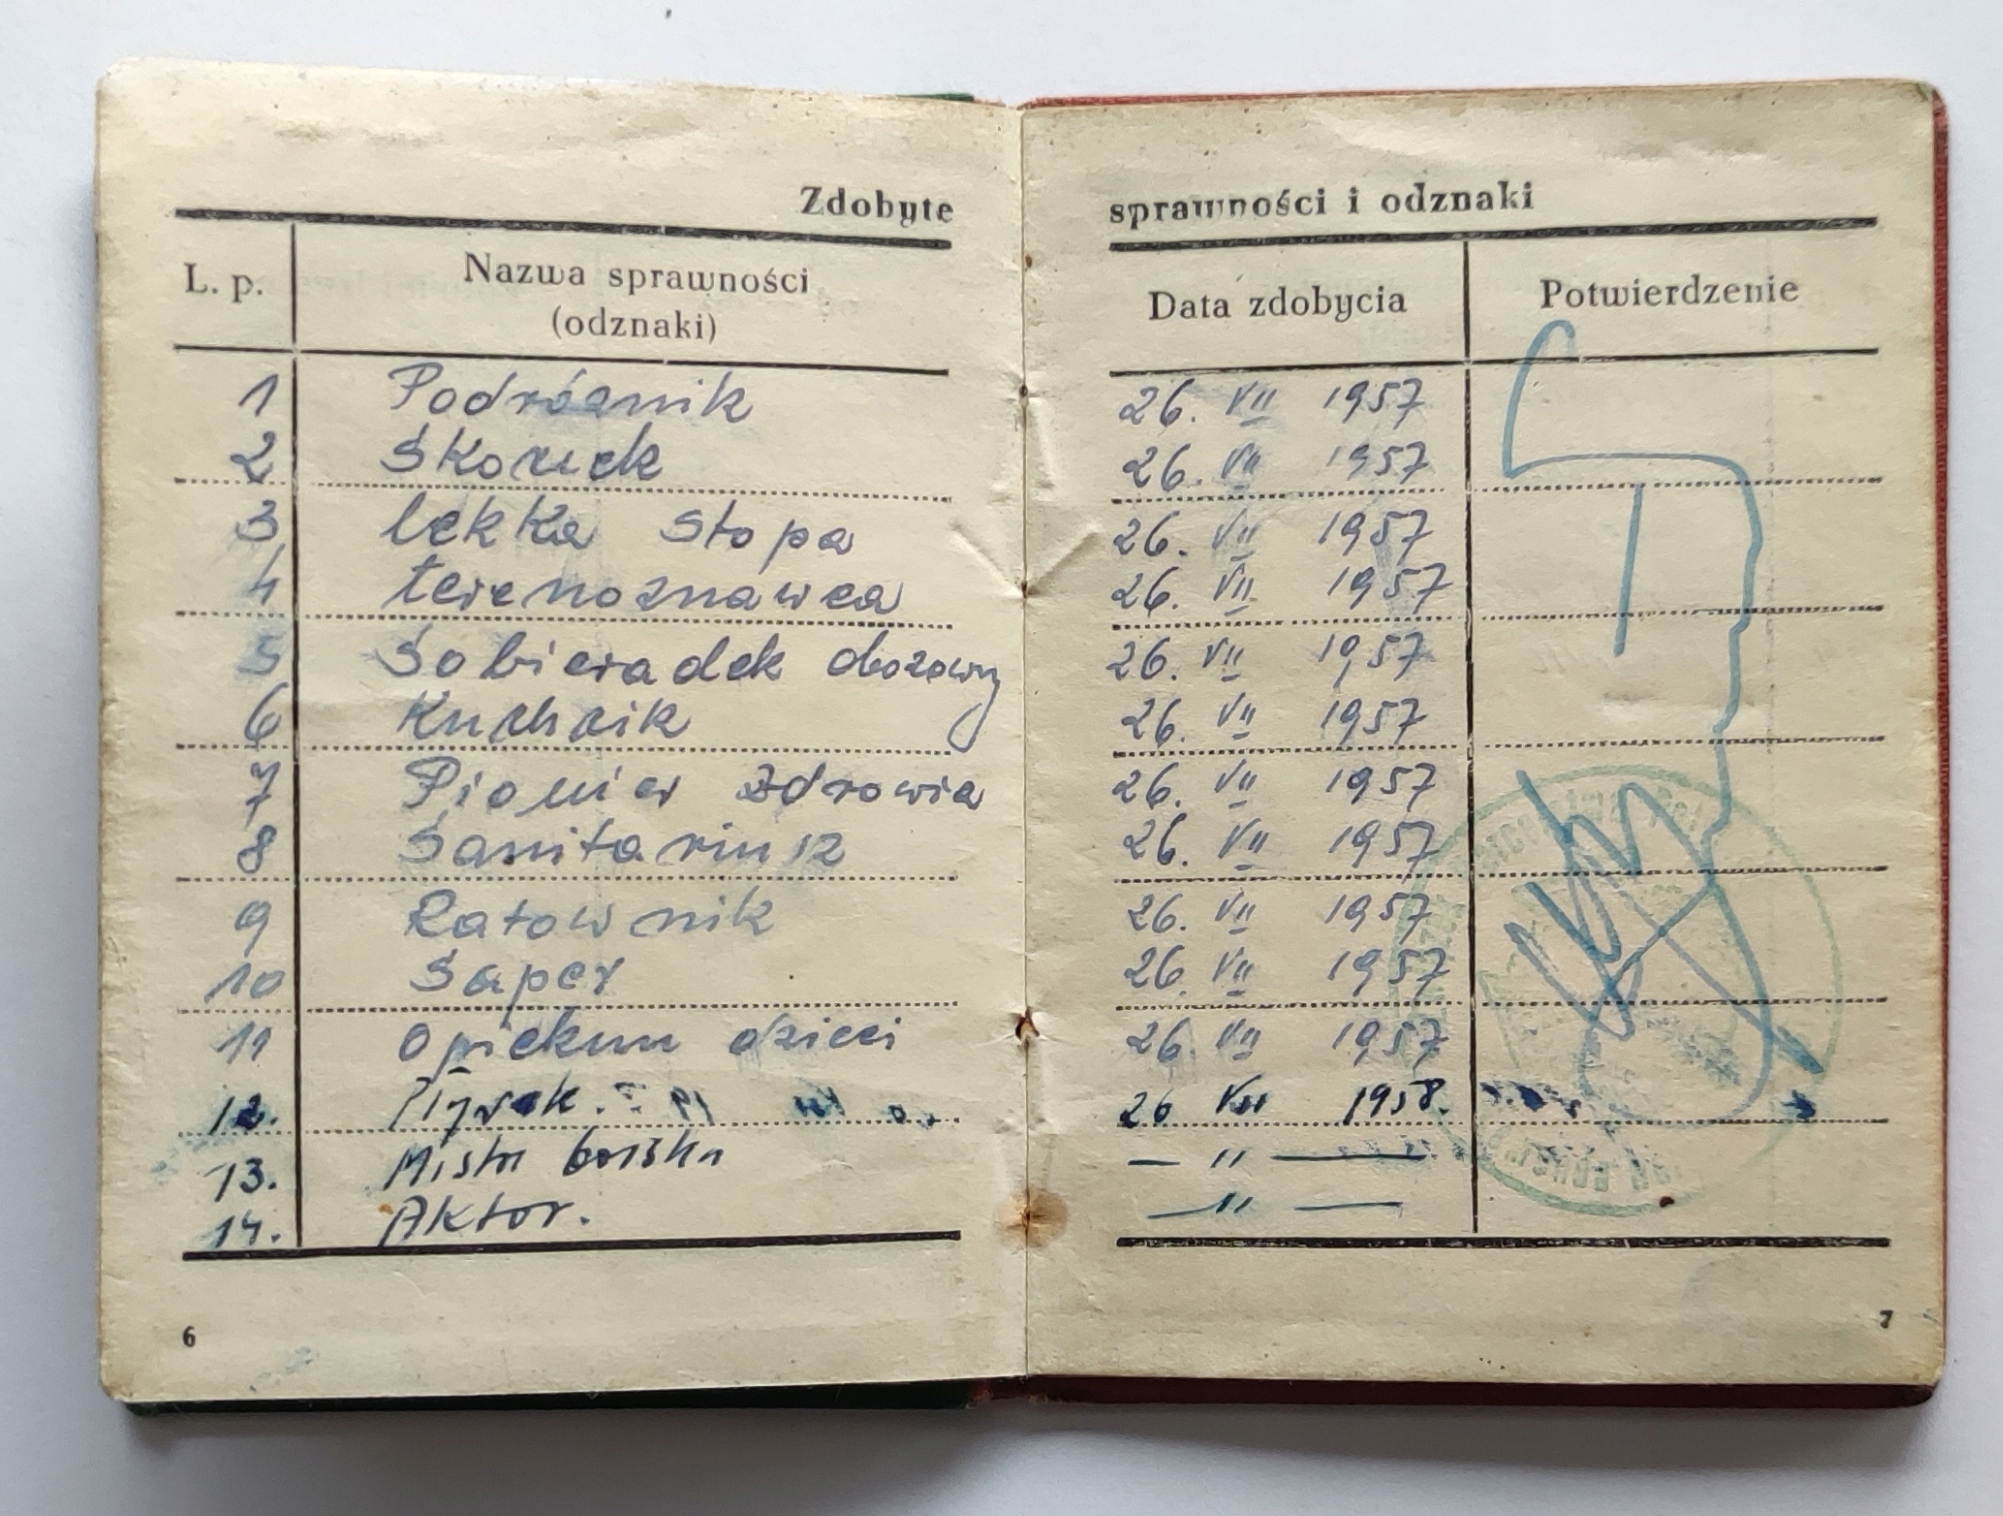 Zdobyte sprawności i odznaki
L. p. Nazwa sprawności Data zdobycia Potwierdzenie
(odznaki)
1 Podróżnik 26. VII 1957
2 Skoczek 26. VII 1957
3 lekka stopa 26. VII 1957
4 terenoznawca 26. VII 1957
5 Sobieradek obozowy 26. VII 1957
6 Kuchcik 26. VII 1957
7 Pionier zdrowia 26. VII 1957
8 Sanitariusz 26. VII 1957
9 Ratownik 26. VII 1957
10 Saper 26. VII 1957
11 Opiekun dzieci 26. VII 1957
12. 26 VII 1958.
13. Mistrz boiska — " —
14. Aktor. — " —
6 7